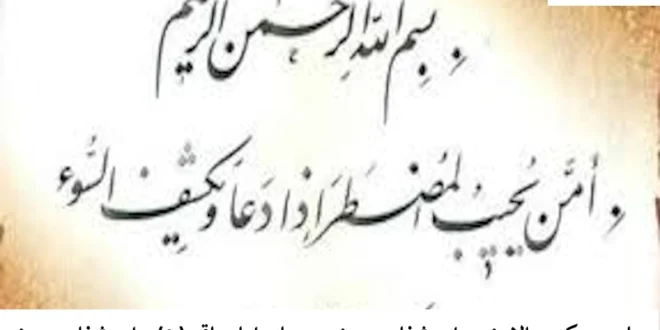 بسم الله الرحمن الرحیم
أمَّن یُجیبُ المُضطَرَ اِذا دَعاَ وَ یَکشِفُ السُّوء